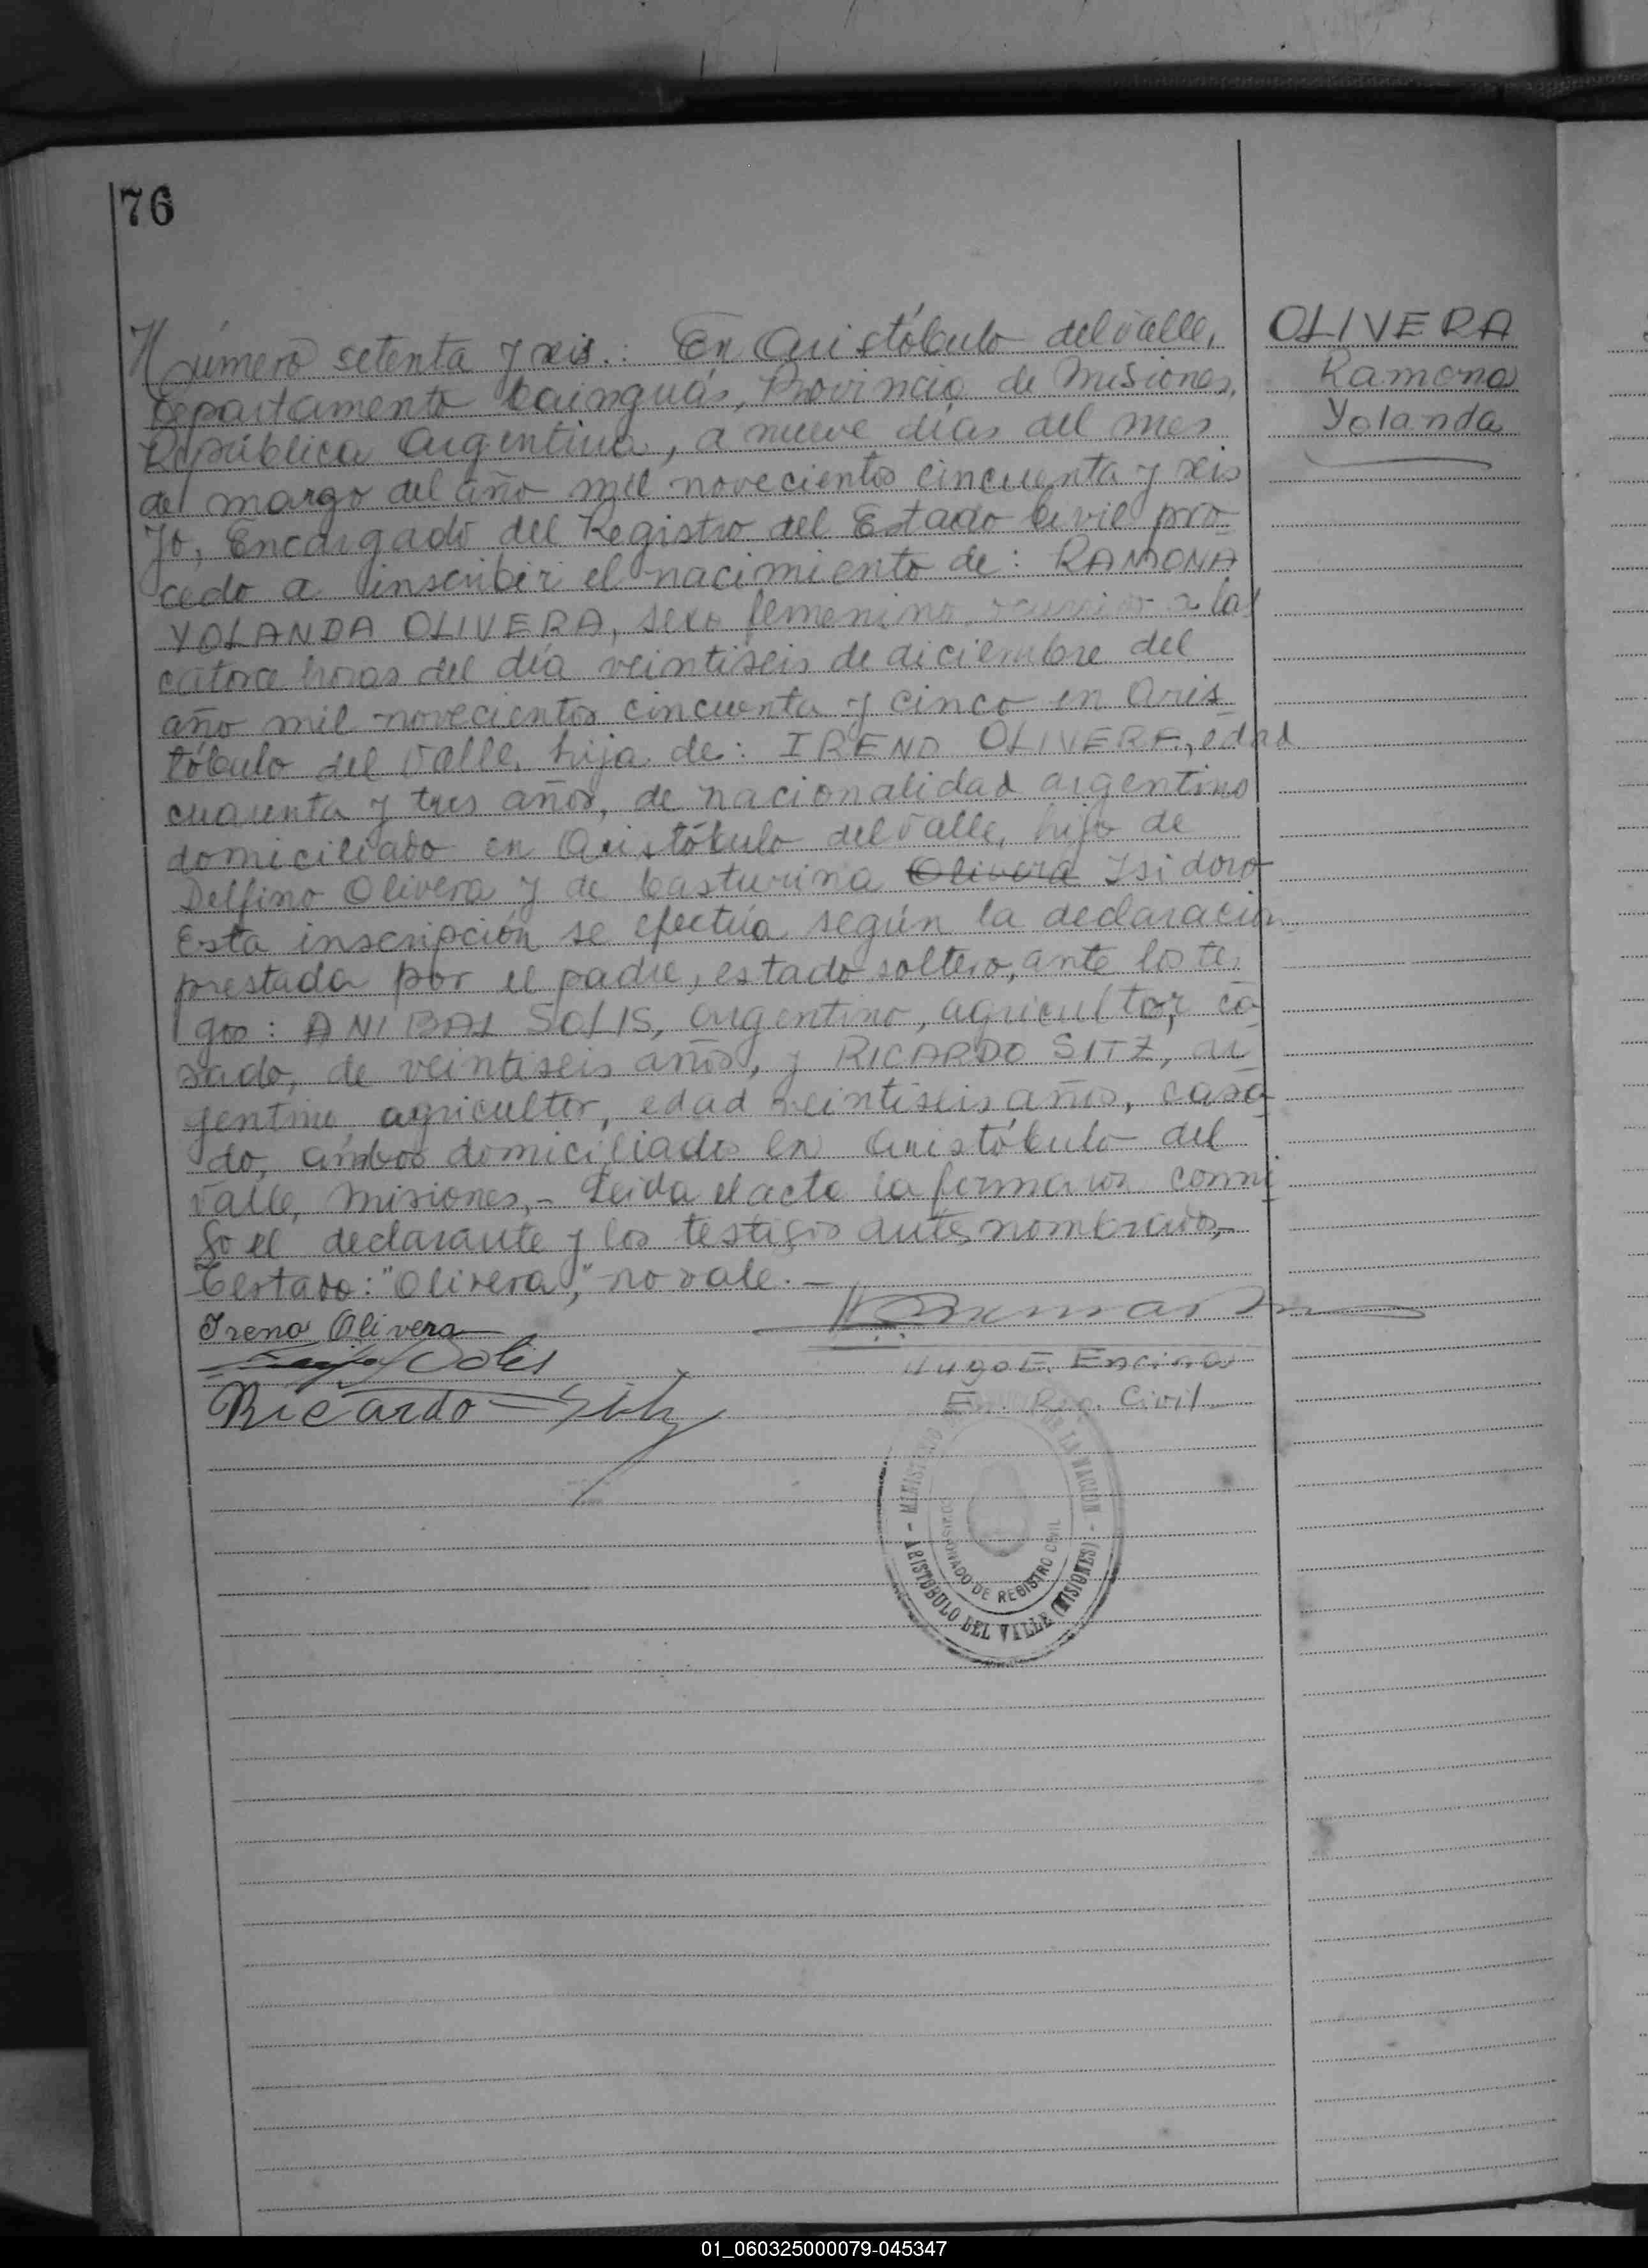 76
Número setenta y seis.: En Aristóbulo del Valle,
Departamento Cainguás, Provincia de Misiones,
República Argentina, a nueve días del mes
de marzo del año mil novecientos cincuenta y seis
Yo, Encargado del Registro del Estado Civil pro-
cedo a inscribir el nacimiento de: RAMONA
YOLANDA OLIVERA, sexo femenino, a las
catorce horas del día veintiseis de diciembre del
año mil novecientos cincuenta y cinco en Aris-
tóbulo del Valle, hija de: IRENO OLIVERA, edad
cuarenta y tres años, de nacionalidad argentino
domiciliado en Aristóbulo del Valle, hijo de
Delfino Olivera y de Casturina Olivera Isidoro
Esta inscripción se efectúa según la declaración
prestada por el padre, estado soltero, ante los te-
gos: ANIBAL SOLIS, argentino, agricultor, ca-
sado, de veintiseis años, y RICARDO SITZ, ar-
gentino agricultor, edad veintiseis años, casa-
do, ambos domiciliados en Aristóbulo del
Valle, Misiones,- Leida el acta la firmaron conmi-
go el declarante y los testigos antes nombrados,-
Testado: "Olivera", no vale.-
Ireno Olivera
Solis
Ricardo Sitz
Hugo E. Encina
En. Reg. Civil
MINISTERIO LA NACION - ARISTOBULO DEL VALLE (MISIONES) -
DE REGISTRO CIVIL
OLIVERA
Ramona
Yolanda
01_060325000079-045347